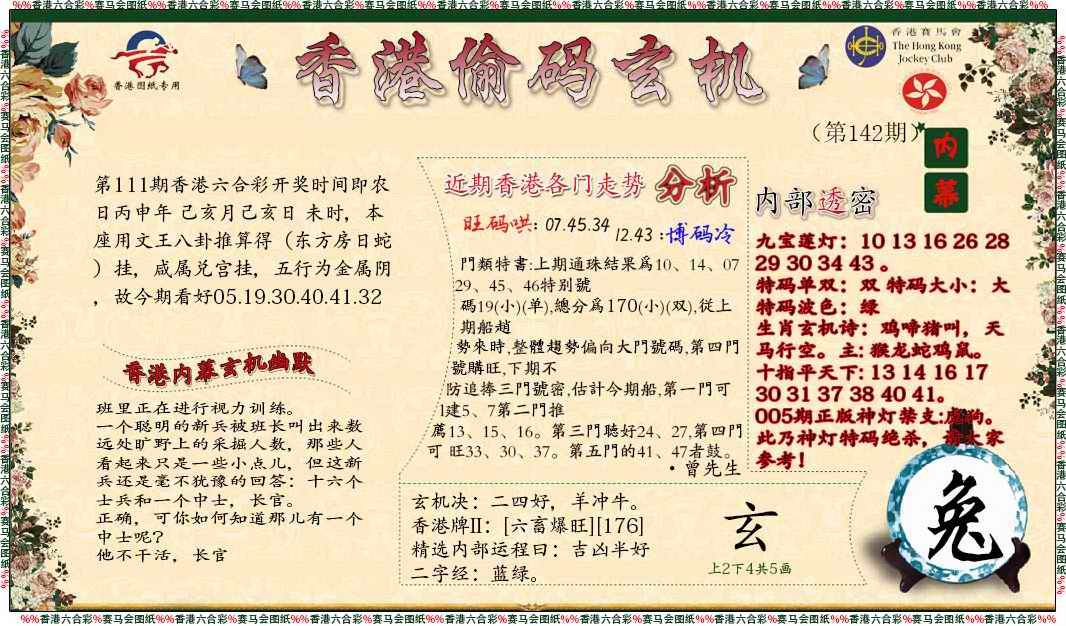 %%香港六合彩%赛马会图纸%%香港六合彩%赛马会图纸%%香港六合彩%赛马会图纸%%香港六合彩%赛马会图纸%%香港六合彩%赛马会图纸%%香港六合彩%赛马会图纸%%香港六合彩%%
香港图纸专用
香港偷码玄机
香港賽馬會
The Hong Kong
Jockey Club
（第142期）
内
幕
第111期香港六合彩开奖时间即农
日丙申年 己亥月己亥日 未时，本
座用文王八卦推算得（东方房日蛇
）挂，咸属兑宫挂，五行为金属阴
，故今期看好05.19.30.40.41.32
香港内幕玄机幽默
班里正在进行视力训练。
一个聪明的新兵被班长叫出来数
远处旷野上的采掘人数，那些人
看起来只是一些小点儿，但这新
兵还是毫不犹豫的回答：十六个
士兵和一个中士，长官。
正确，可你如何知道那儿有一个
中士呢？
他不干活，长官
近期香港各门走势 分析
旺码哄：07.45.34
12.43：博码冷
門類特書:上期通珠結果爲10、14、07
29、45、46特别號
碼19(小)(单),總分爲170(小)(双),從上
期船趙
勢來時,整體趨勢偏向大門號碼,第四門
號購旺,下期不
防追捧三門號密,估計今期船,第一門可
1建5、7第二門推
薦13、15、16。第三門聽好24、27,第四門
可 旺33、30、37。第五門的41、47者鼓。
·曾先生
玄机决：二四好，羊冲牛。
香港牌II：[六畜爆旺][176]
精选内部运程曰：吉凶半好
二字经：蓝绿。
玄
上2下4共5画
内部透密
九宝莲灯：10 13 16 26 28
29 30 34 43 。
特码单双：双 特码大小：大
特码波色：绿
生肖玄机诗：鸡啼猪叫，天
马行空。主: 猴龙蛇鸡鼠。
十指平天下: 13 14 16 17
30 31 37 38 40 41。
005期正版神灯禁支:虎狗。
此乃神灯特码绝杀，请大家
参考！
兔
%%香港六合彩%赛马会图纸%%香港六合彩%赛马会图纸%%香港六合彩%赛马会图纸%%香港六合彩%赛马会图纸%%香港六合彩%赛马会图纸%%香港六合彩%赛马会图纸%%香港六合彩%%